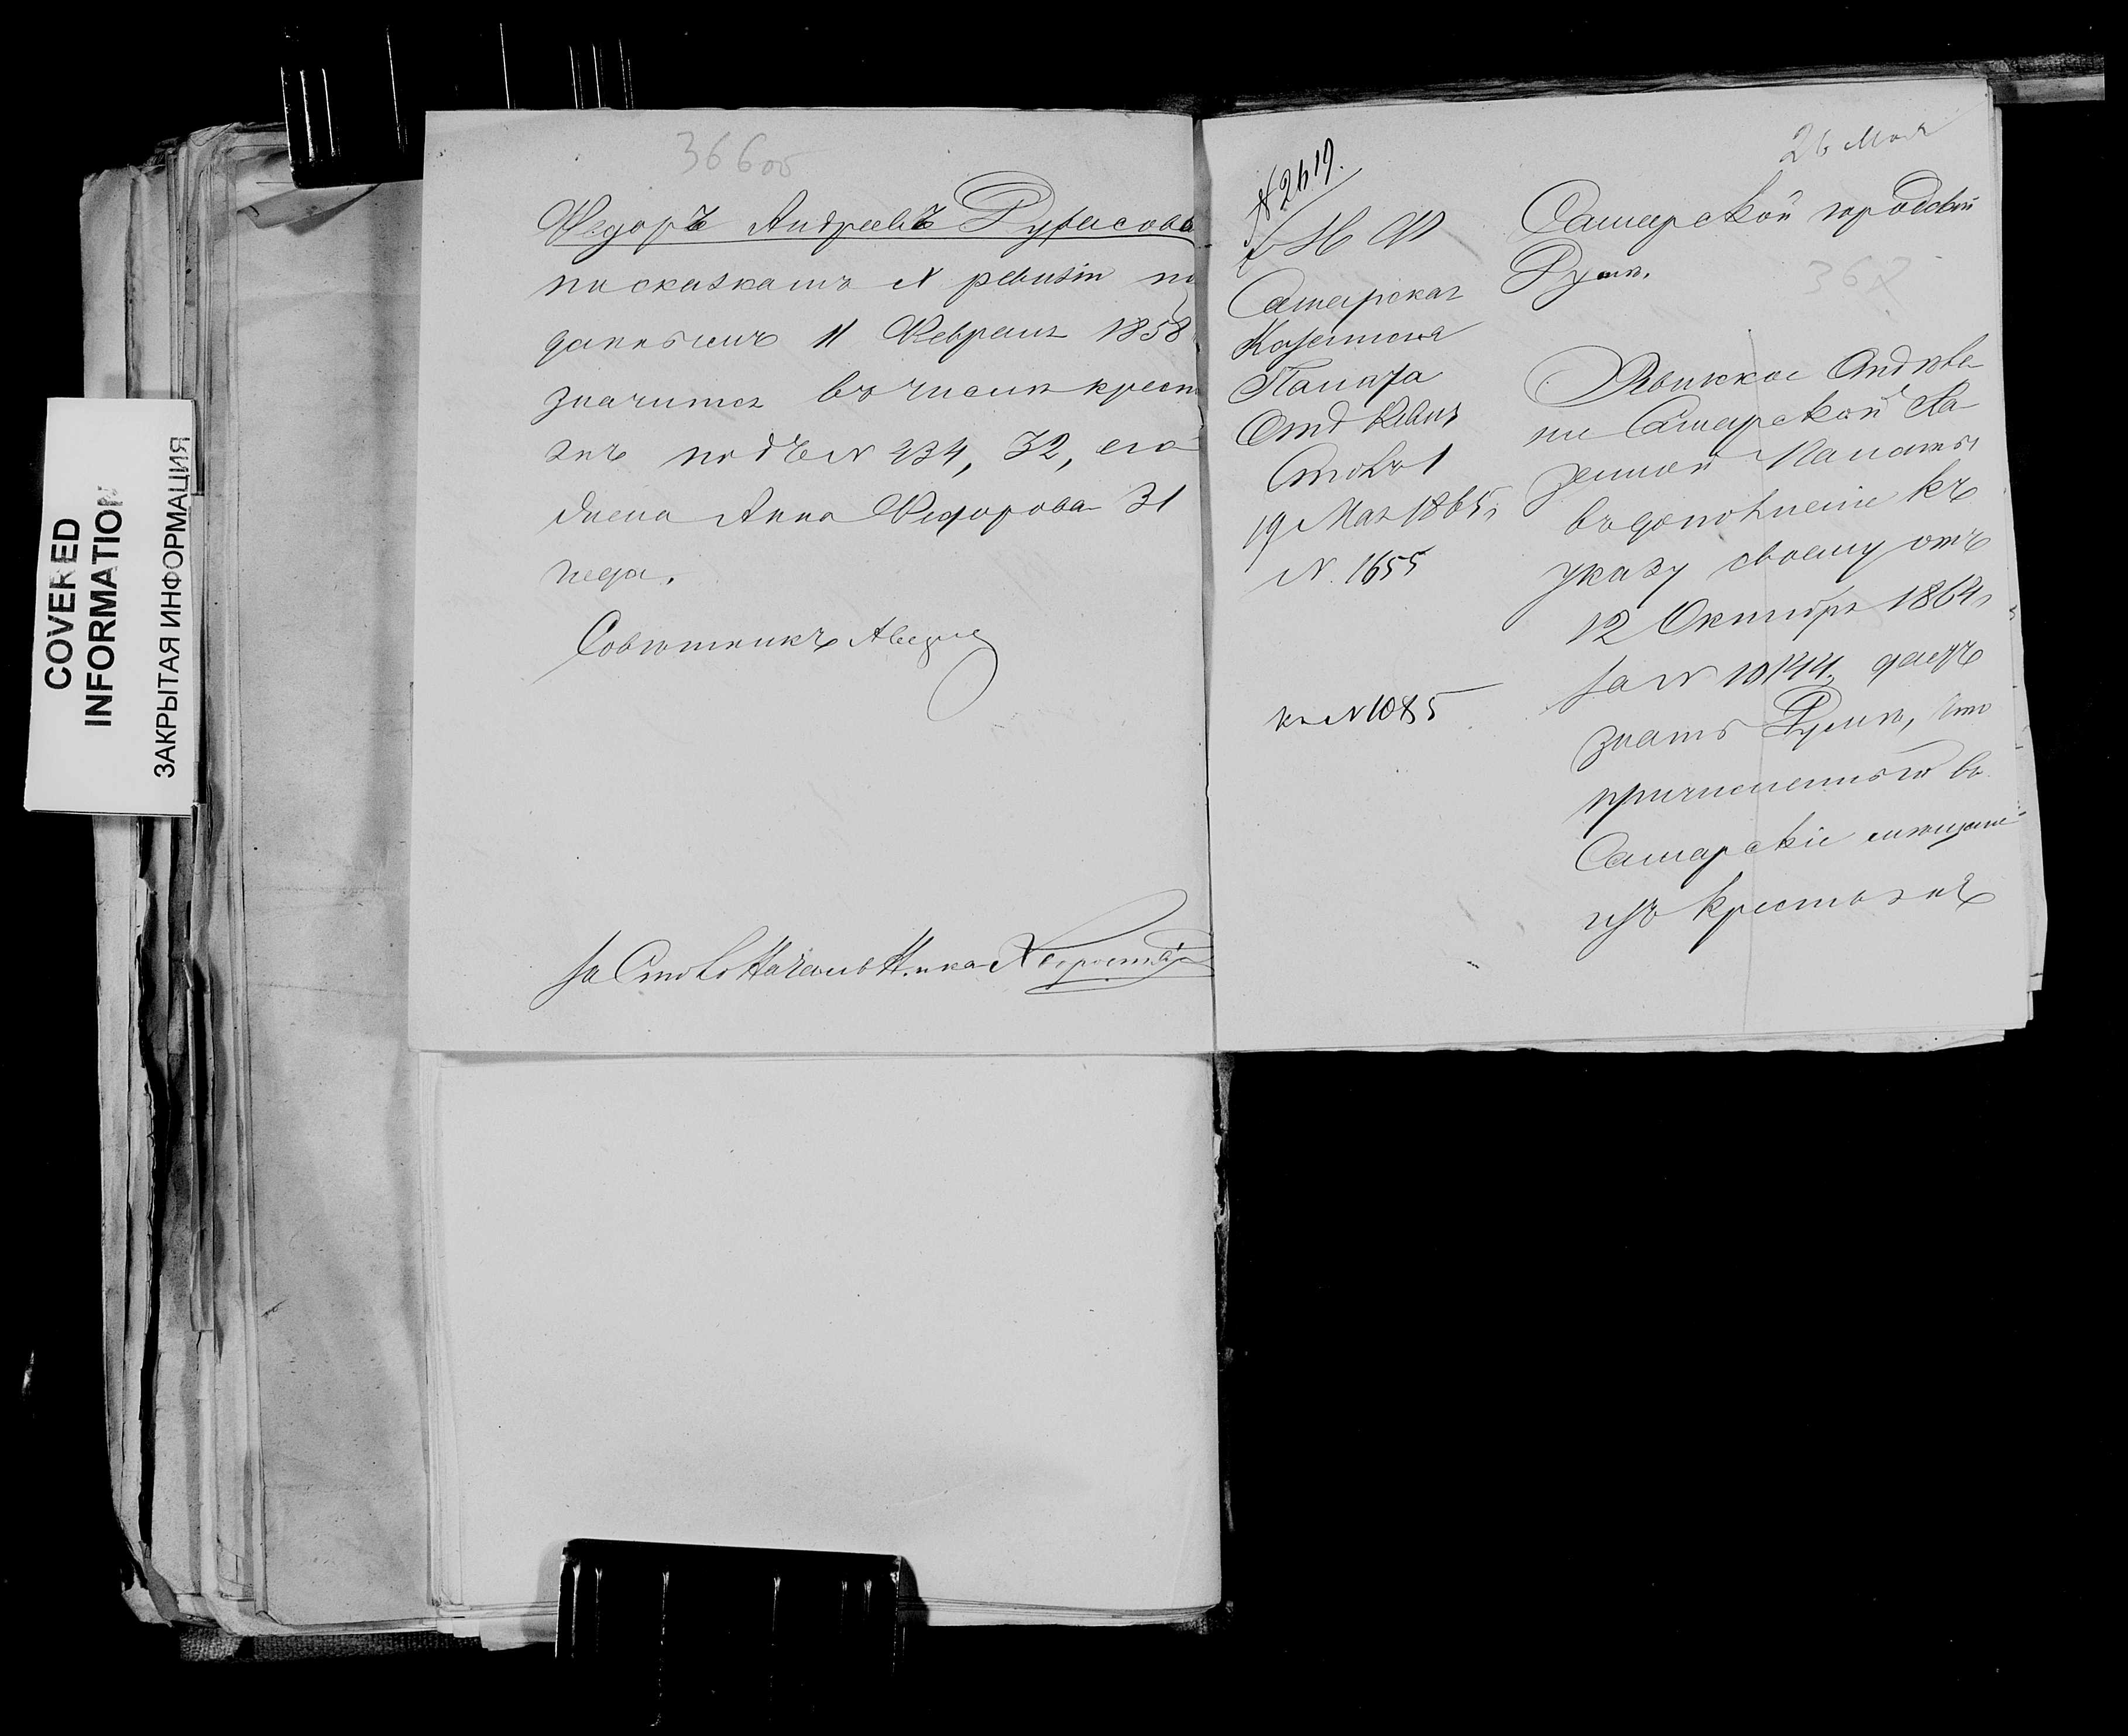 COVERED
INFORMATION
ЗАКРЫТАЯ ИНФОРМАЦИЯ
366 об
Федоръ Андреевъ
по сказкамъ X ревизіи по
даннымъ 11 Февраля 1858
значится въ числѣ крест
янъ подъ № 234, 32, его
жена Анна Федорова 31
года.
Совѣтникъ
За Столоначальника
№ 2619.
М Ф
Самарская
Казенная
Палата
Отд Ревиз
Столъ 1
19 Мая 1865,
№. 1655
к № 1085
26 Мая
Самарской городской
Думѣ.
367
Ревизское Отдѣле
ніе Самарской Ка
зенной Палаты
въ дополненіе къ
указу своему отъ
12 Октября 1864,
за № 10144, даетъ
знать Думѣ, что
причисленный въ
Самарскіе мѣщане
изъ крестьянъ